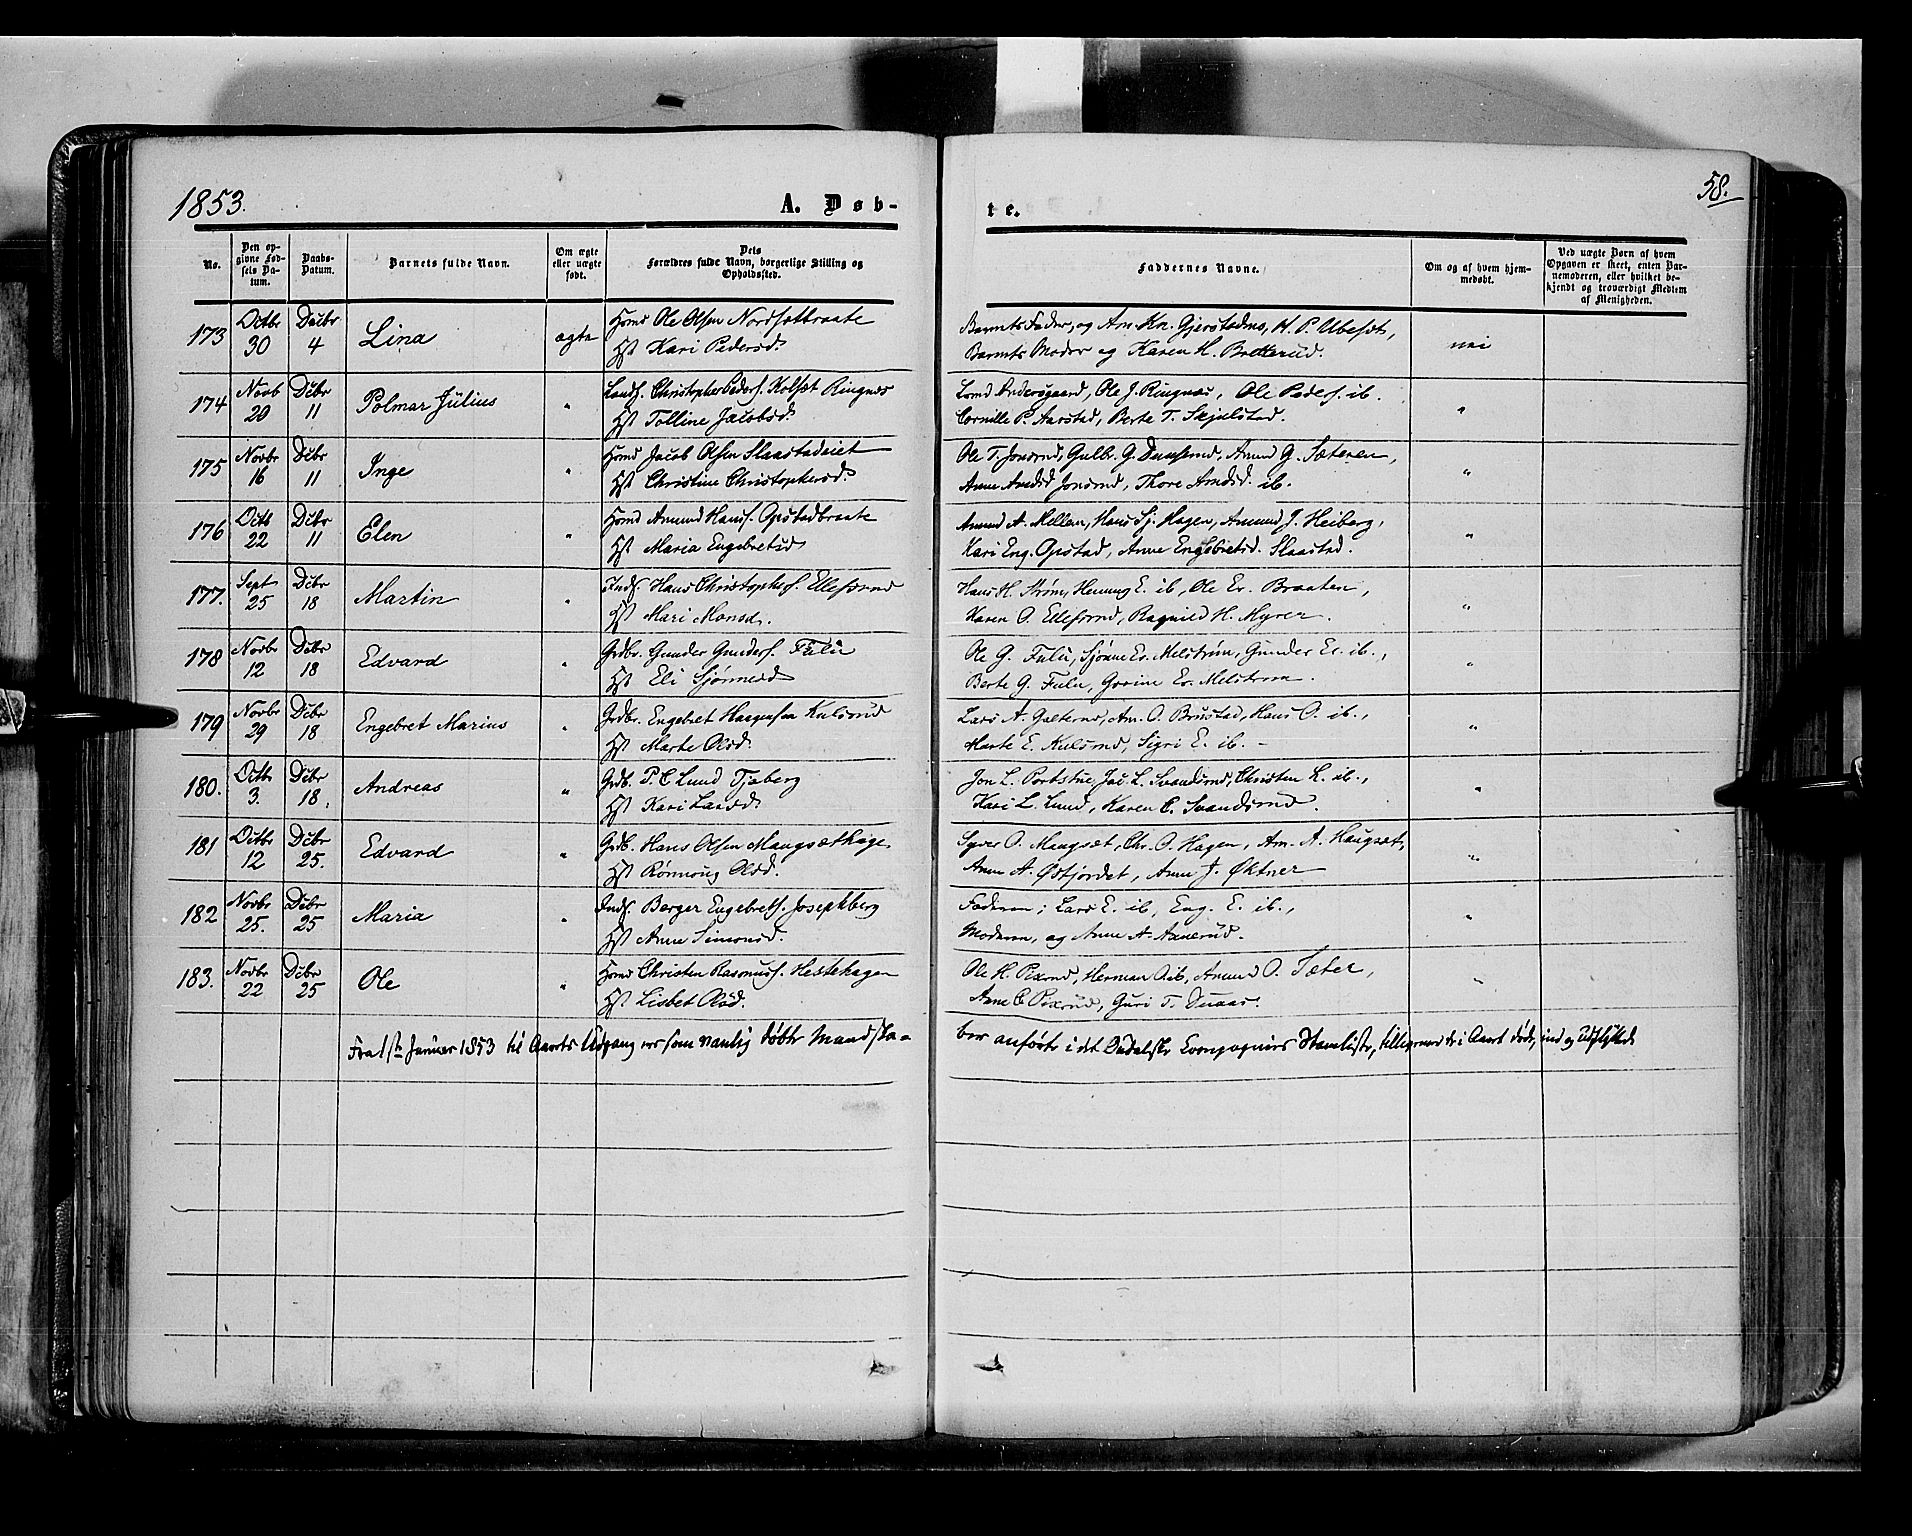 1853.
A. Døb-
te.
58.
No.
Den op-
givne Fød-
sels Da-
tum.
Daabs-
Datum.
Barnets fulde Navn.
Om ægte
eller uægte
født.
Dets
Forældres fulde Navn, borgerlige Stilling og
Opholdssted.
Faddernes Navne.
Om og af hvem hjem-
medøbt.
Ved uægte Børn af hvem
Opgaven er skeet, enten Bar-
nemoderen, eller hvilket be-
kjendt og troværdigt Medlem
af Menigheden.
173 Octbr 30 Decbr 4 Lina ægte Ole Olsen Nordsætbraate
Kari Pedersd.
Barnets Fader, og Am. Kn. Gjerstadmo, H. P. Ulesæt,
Barnets Moder og Karen H. Bretterud. nei
174 Novb 20 Dcbr 11 Polmar Julius " Christopher Peders. Kolsæt Ringnes
Tolline Jacobsd.
Ole J. Ringnes, Ole Peders. ib.
P. Aarstad, Berte T. Skjulstad. "
175 Novbr 16 Dcbr 11 Inge " Jacob Olsen Slaastadeiet
Christine Christophersd.
Ole T. Gulbr. G. Amund G. Sæteren,
Anne Amdsd Thore Amdsd. ib. "
176 Octb 22 Dcbr 11 Elen " Amund Hans. Opstadbraate
Maria Engebretsd
Amund A. Mellem, Hans Sj. Hagen, Amund J. Heiberg,
Kari Eng. Opstad, Anne Engebretsd. Slaastad. "
177. Sept 25 Dcbr 18 Martin " Inds. Hans Christophers. Ellefsrud
Mari Monsd.
Hans H. Strøm, Henning E. ib, Ole Er. Braaten,
Karen O. Ellefsrud, Ragnild H. Myrer. "
178 Novbr 12 Dcbr 18 Edvard " Grdbr. Gunder Gunders. Fulu
Eli Sjønnesd
Ole G. Fulu, Sjønne Er. Melstrøm, Gunder Er. ib.,
Berte G. Fulu, Er. Melstrom. "
179 Novbr 29 Dcbr 18 Engebret Marius " Grdbr. Engebret Haagensen Kulsrud
Marte Olsd.
Lars A. Am. O. Brustad, Hans O. ib.,
Marte E. Kulsrud, Sigri E. ib. - "
180. Octb 3. Dcbr 18. Andreas " Grdb. P. C. Lund Tjaberg
Kari Larsd
Jon L. Portstue, Jac. L. Svandsrud, Christen L. ib.,
Kari L. Lund, Karen C. Svandsrud. "
181 Octbr 12 Dcbr 25. Edvard " Grdb. Hans Olsen Maugsæthage
Rønnoug Olsd.
Syver O. Maugsæt, Chr. O. Hagen, Am. A. Haugsæt,
Anne A. Østfjordet, Anne J. Øktner "
182 Novbr 25. Dcbr 25 Maria " Inds. Børger Engebrets. Josephberg
Anne Simonsd.
Faderen, Lars E. ib, Eng. E. ib.,
Moderen, og Anne A. Axnerud. "
183. Novbr 22 Dcbr 25 Ole " Christen Rasmuss. Hestehagen
Lisbet Olsd.
Ole H. Pixrud, Herman O. ib, Amund O. Sæter,
Anne C. Pixrud, Guri T. "
Fra 1ste Januar 1853 til Aarets Udgang ere som vanlig døbte Mandska-
ber anførte i det Odalske Compagnies Stamliste, tilligemed de i Aaret døde, ind og udflyttede